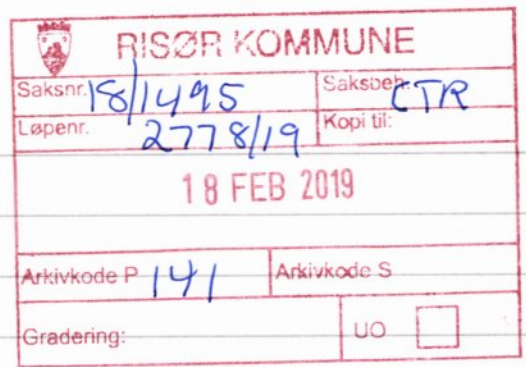 RISØR KOMMUNE
Saksnr. 18/1495 Saksbeh. CTR
Løpenr. 2778/19 Kopi til:
18 FEB 2019
Arkivkode P 141 Arkivkode S
Gradering: UO